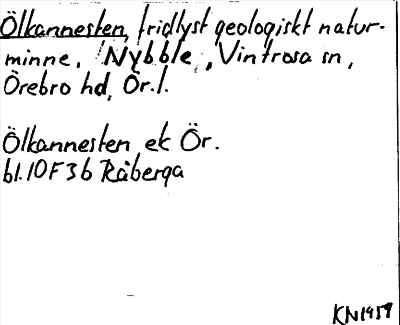 Ölkannesten, fridlyst geologiskt natur-
minne, Nybble, Vintrosa sn,
Örebro hd, Ör. l.
Ölkannesten ek Ör.
bl. 10F3b Råberga
KN1959